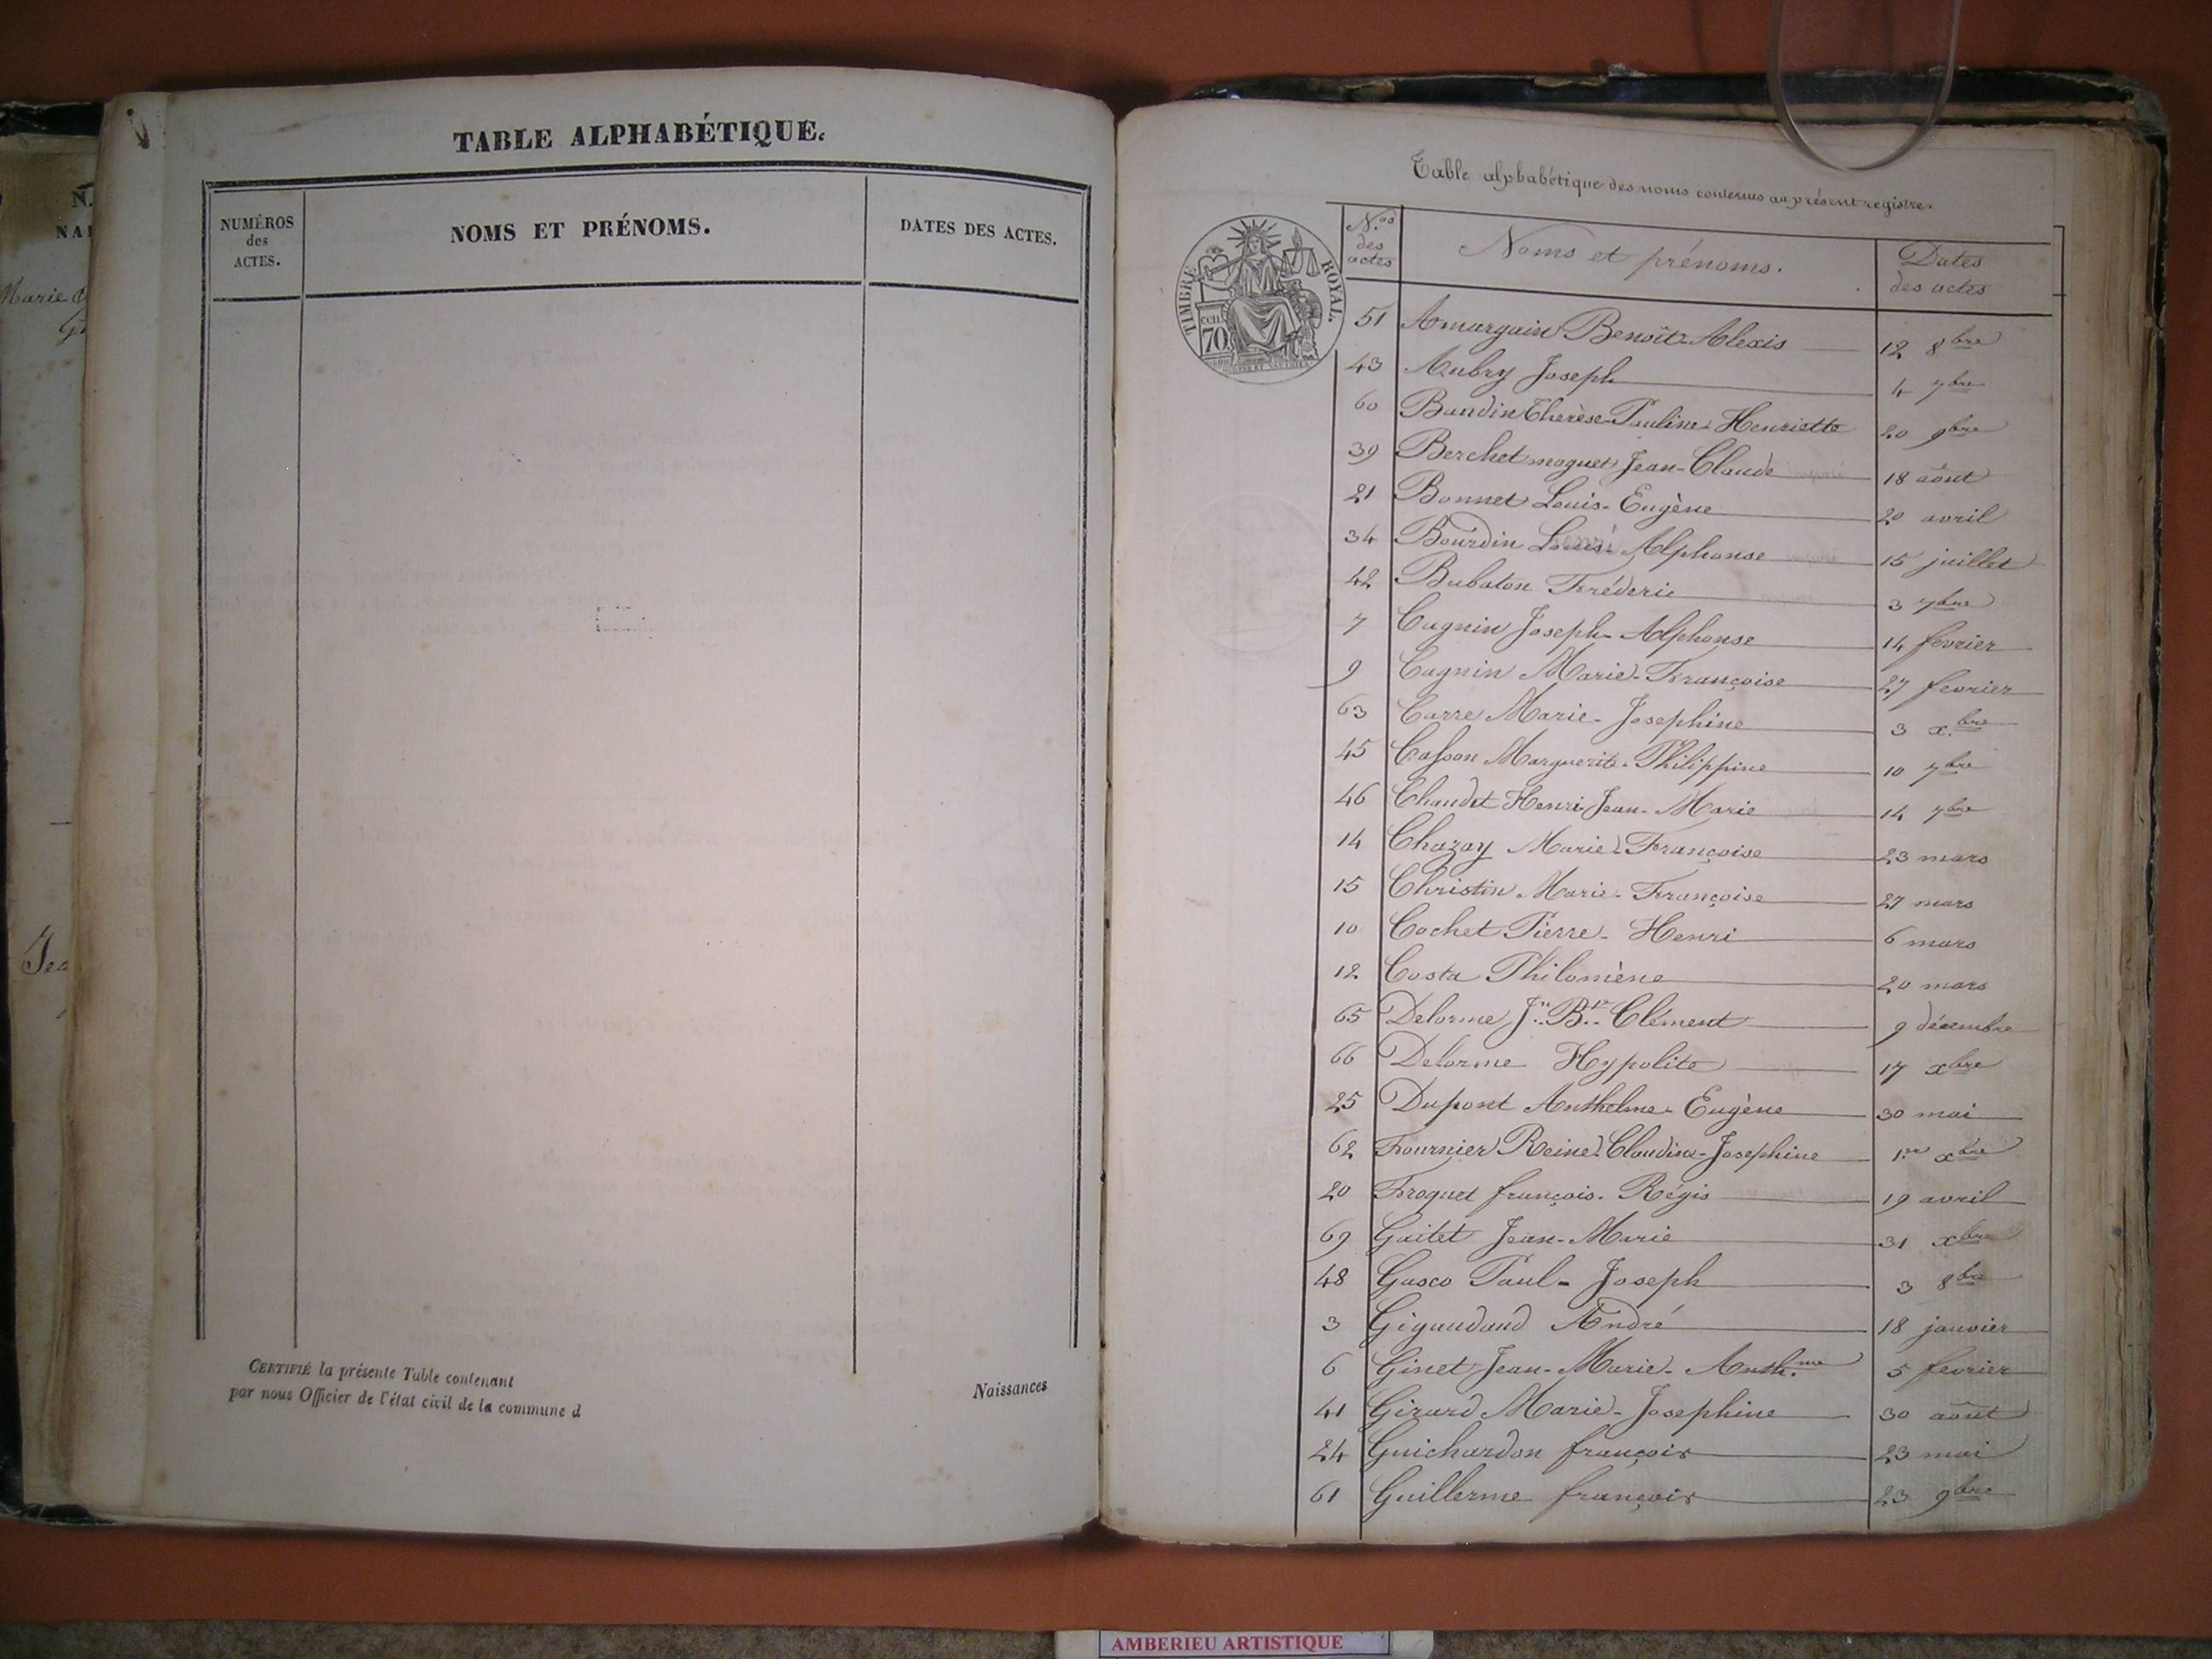 TABLE ALPHABÉTIQUE.
NUMÉROS
des
ACTES.
NOMS ET PRÉNOMS.
DATES DES ACTES.
CERTIFIÉ la présente Table contenant
Naissances
par nous Officier de l'état civil de la commune d
Marie
Table alphabétique des noms contenus au présent registre.
N.os
des
actes
Noms et prénoms.
Dates
des actes
TIMBRE ROYAL.
cen.
70
51 Amarguin Benoît-Alexis 12 8bre
43 Aubry Joseph 4 7bre
60 Baudin Therèse-Pauline-Henriette 20 9bre
39 Berchet moguet Jean-Claude 18 août
21 Bonnet Louis-Eugène 20 avril
34 Bourdin Alphonse 15 juillet
42 Bubaton Fréderic 3 7bre
7 Cagnin Joseph-Alphonse 14 fevrier
9 Cagnin Marie-Françoise 27 fevrier
63 Carre Marie-Josephine 3 x.bre
45 Casson Marguerite-Philippine 10 7bre
46 Chaudet Henri-Jean-Marie 14 7bre
14 Chazay Marie-Françoise 23 mars
15 Christin Marie-Françoise 27 mars
10 Cochet Pierre-Henri 6 mars
12 Costa Philomène 20 mars
65 Delorme Jn. Bte. Clément 9 décembre
66 Delorme Hypolite 17 xbre
25 Dupont Anthelme-Eugène 30 mai
62 Fournier Reine-Claudine-Josephine 1.er xbre
20 Froquet françois-Régis 19 avril
69 Gaitet Jean-Marie 31 xbre
48 Gasco Paul-Joseph 3 8bre
3 Gigaudaud André 18 janvier
6 Ginet Jean-Marie-Anth.me 5 fevrier
41 Girard Marie-Josephine 30 août
24 Guichardon françois 23 mai
61 Guillerme françois 23 9bre
AMBERIEU ARTISTIQUE